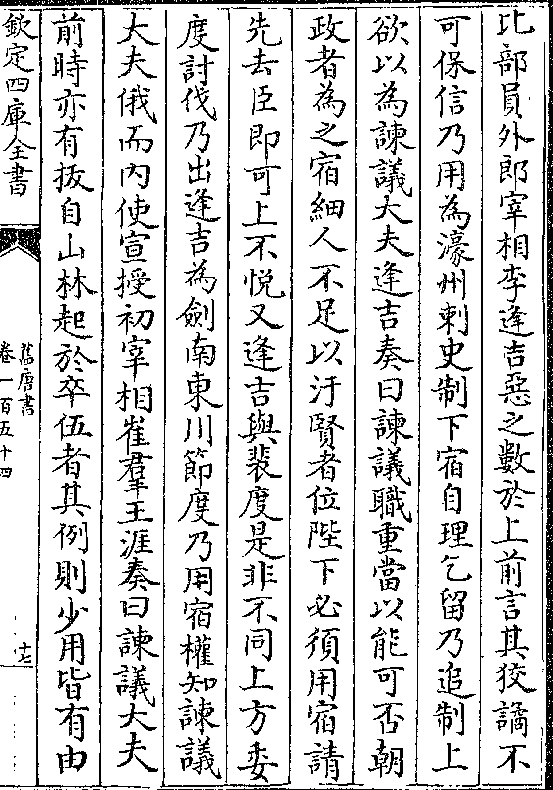 比部員外郎宰相李逢吉惡之數於上前言其狡譎不
可保信乃用為濠州刺史制下宿自理乞留乃追制上
欲以為諫議大夫逢吉奏曰諫議職重當以能可否朝
政者為之宿細人不足以汙賢者位陛下必須用宿請
先去臣即可上不悦又逢吉與裴度是非不同上方委
度討伐乃出逢吉為劍南東川節度乃用宿權知諫議
大夫俄而内使宣授初宰相崔羣王涯奏曰諫議大夫
前時亦有拔自山林起於卒伍者其例則少用皆有由
欽定四庫全書
舊唐書
卷一百五十四
十七